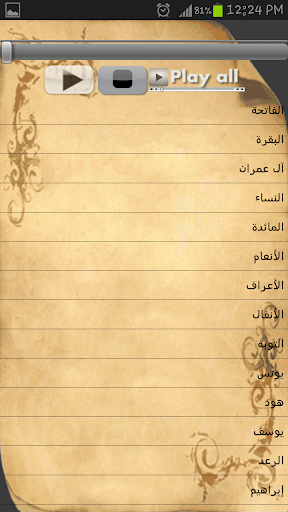 81% 12:24 PM
Play all
الفاتحة
البقرة
آل عمران
النساء
المائدة
الأنعام
الأعراف
الأنفال
التوبة
يونس
هود
يوسف
الرعد
إبراهيم